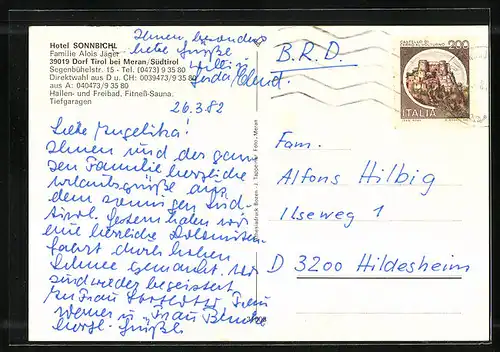 Hotel SONNBICHL
Familie Alois Jäger
39019 Dorf Tirol bei Meran/Südtirol
Segenbühelstr. 15 - Tel. (0473) 9 35 80
Direktwahl aus D u. CH: 0039473/9 35 80
aus A: 040473/9 35 80
Hallen- und Freibad, Fitneß-Sauna.
Tiefgaragen
Ihnen besonders
liebe Grüße
26.3.82
Liebe Angelika!
Ihnen und der gan
zen Familie herzliche
Urlaubsgrüße aus
dem sonnigen Süd-
tirol. Gestern haben wir
eine herrliche Dolomiten-
fahrt durch hohen
Schnee gemacht. Wir
sind wieder begeistert
Frau
u. Frau
herzl. Grüße
B.R.D.
CASTELLO DI
CERRO AL VOLTURNO
200
ITALIA
Fam.
Alfons Hilbig
Ilseweg 1
D 3200 Hildesheim